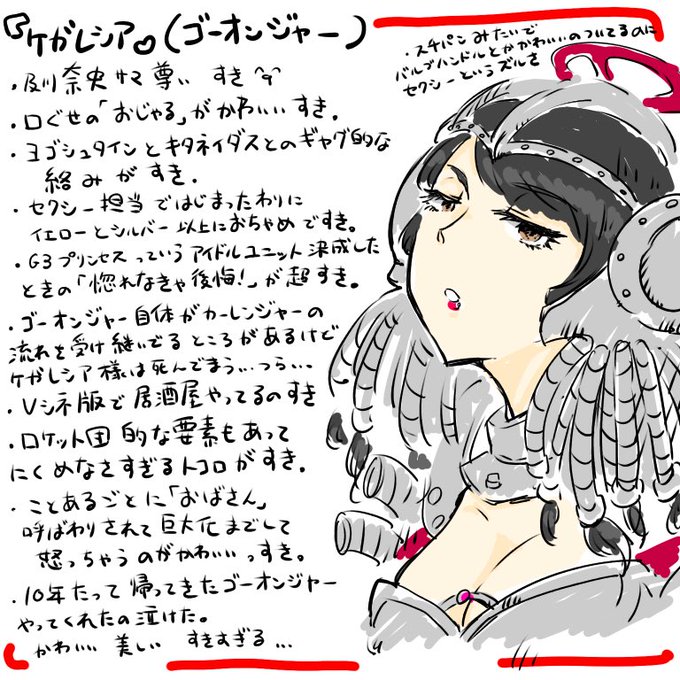 『ケガレシア♥(ゴーオンジャー)
・スチパンみたいで
バルブハンドルとかかわいいのついてるのに
セクシーというズルさ
・及川奈央サマ尊い すき
・口ぐせの「おじゃる」がかわいいすき。
・ヨゴシュタインとキタネイダスとのギャグ的な
絡みがすき.
・セクシー担当ではじまったわりに
イエローとシルバー以上におちゃめですき。
・G3プリンセスっていうアイドルユニット決成した
ときの「惚れなきゃ後悔!」が超すき。
・ゴーオンジャー自体がカーレンジャーの
流れを受け継いでるところがあるけど
ケガレシア様は死んでまう...つら...
・Vシネ版で居酒屋やってるのすき
・ロケット団的な要素もあって
にくめなさすぎるトコロがすき.
・ことあるごとに「おばさん」
呼ばわりされて巨大化までして
怒っちゃうのがかわいいっすき。
・10年たって帰ってきたゴーオンジャー
やってくれたの泣けた。
かわいい 美しい すきすぎる...